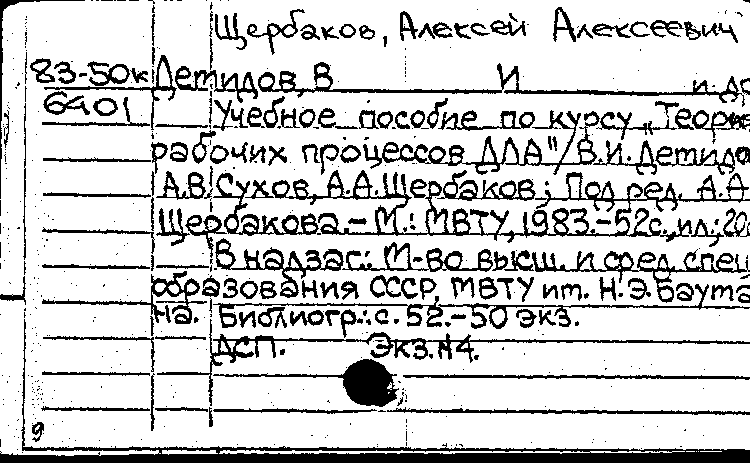 Щербаков, Алексей Алексеевич
83-50к Демидов, В И и др
6901 Учебное пособие по курсу „Теория
рабочих процессов ДЛА"/В.И.Демидо
А.В.Сухов, А.А.Щербаков; Под ред. А.А.
Щербакова.-М.: МВТУ, 1983.-52с.,ил.; 20
В надзаг.: М-во высш. и сред. спец
образования СССР, МВТУ им. Н.Э.Баума
на. Библиогр.: с. 52.-50 экз.
ДСП. Экз.№4.
9